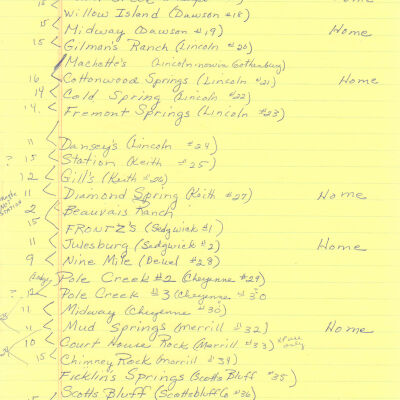 15 Willow Island (Dawson #18)
15 Midway (Dawson #19) Home
15 Gilman's Ranch (Lincoln #20)
Machette's (Lincoln-now in Gothenburg)
16 Cottonwood Springs (Lincoln #21) Home
14 Cold Spring (Lincoln #22)
14. Fremont Springs (Lincoln #23)
11 Dansey's (Lincoln #24)
? 15 Station (Keith #25)
12 Gill's (Keith #26)
11 Diamond Spring (Keith #27) Home
2 Beauvais Ranch
15 FRONTZ'S (Sedgwick #1)
11 Julesburg (Sedgwick #2) Home
9 Nine Mile (Deuel #28)
Pole Creek #2 (Cheyenne #29)
? 12 Pole Creek #3 (Cheyenne #30
11 Midway (Cheyenne #30)
11 Mud Springs (Morrill #32) Home
10 Court House Rock (Morrill #33)
15 Chimney Rock (Morrill #34)
Ficklin's Springs (Scotts Bluff #35)
Scotts Bluff (Scottsbluff Co #36)